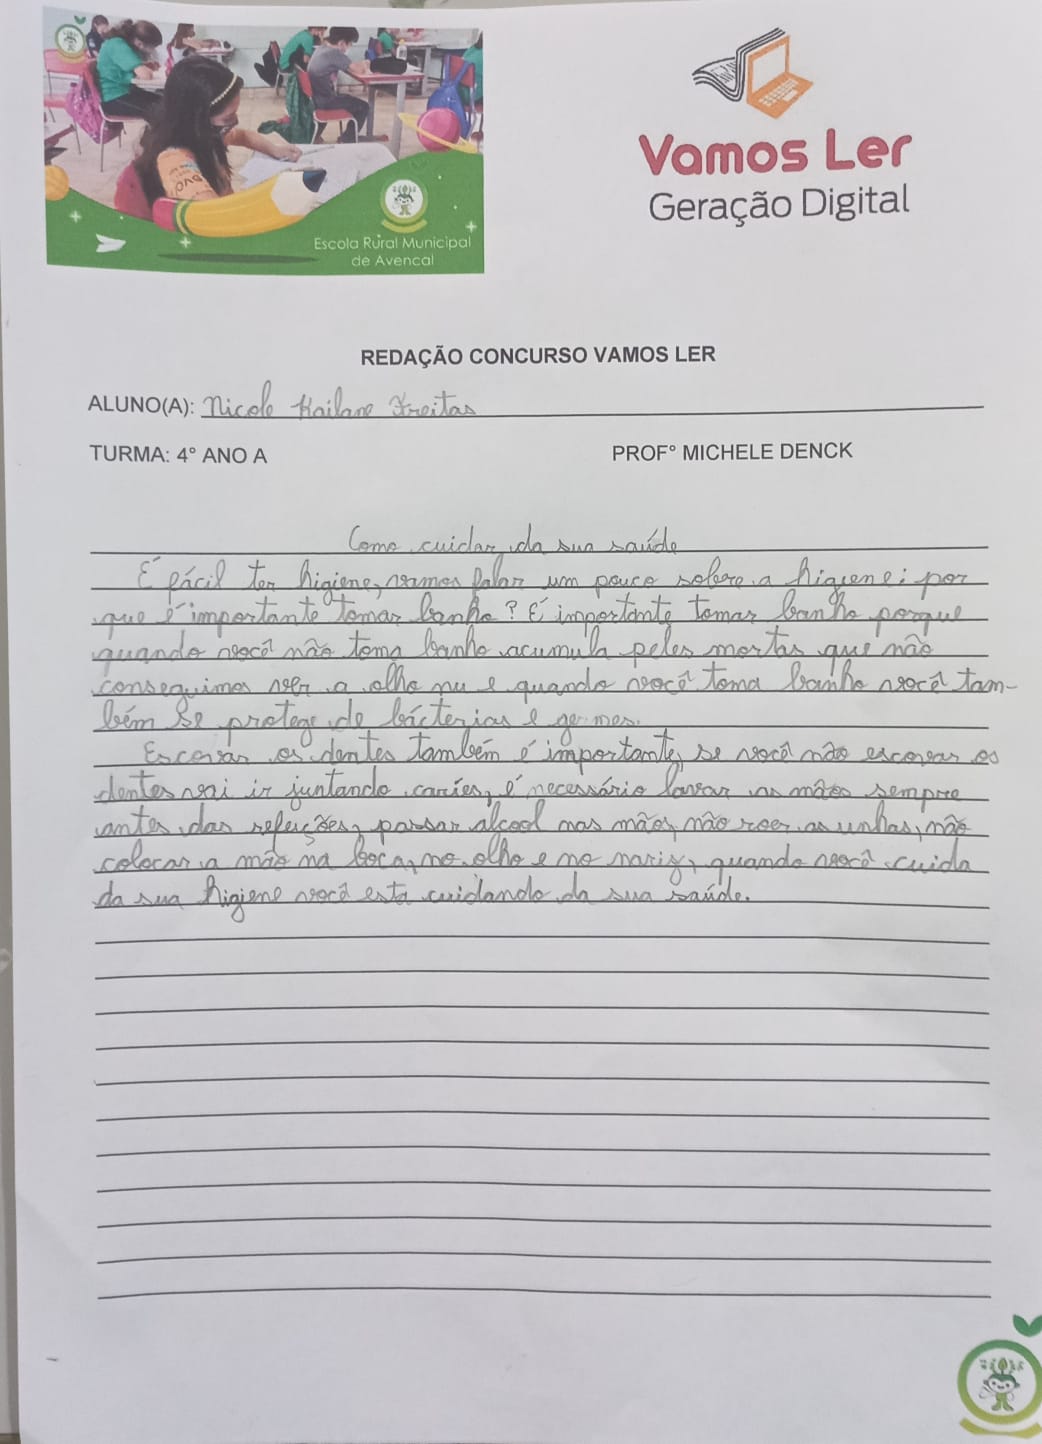 Escola Rural Municipal
de Avencal
Vamos Ler
Geração Digital
REDAÇÃO CONCURSO VAMOS LER
ALUNO(A): Nicole Kailane Freitas
TURMA: 4° ANO A PROF° MICHELE DENCK
Como cuidar da sua saúde
É fácil ter higiene, vamos falar um pouco sobre a higiene: por
que é importante tomar banho? É importante tomar banho porque
quando você não toma banho acumula peles mortas que não
conseguimos ver a olho nu e quando você toma banho você tam-
bém se protege de bácterias e germes.
Escovar os dentes também é importante, se você não escovar os
dentes vai ir juntando caries, é necessário lavar as mãos sempre
antes das refeições, passar alcool nas mãos, não roer as unhas, não
colocar a mão na boca, no olho e no nariz, quando você cuida
da sua higiene você está cuidando da sua saúde.